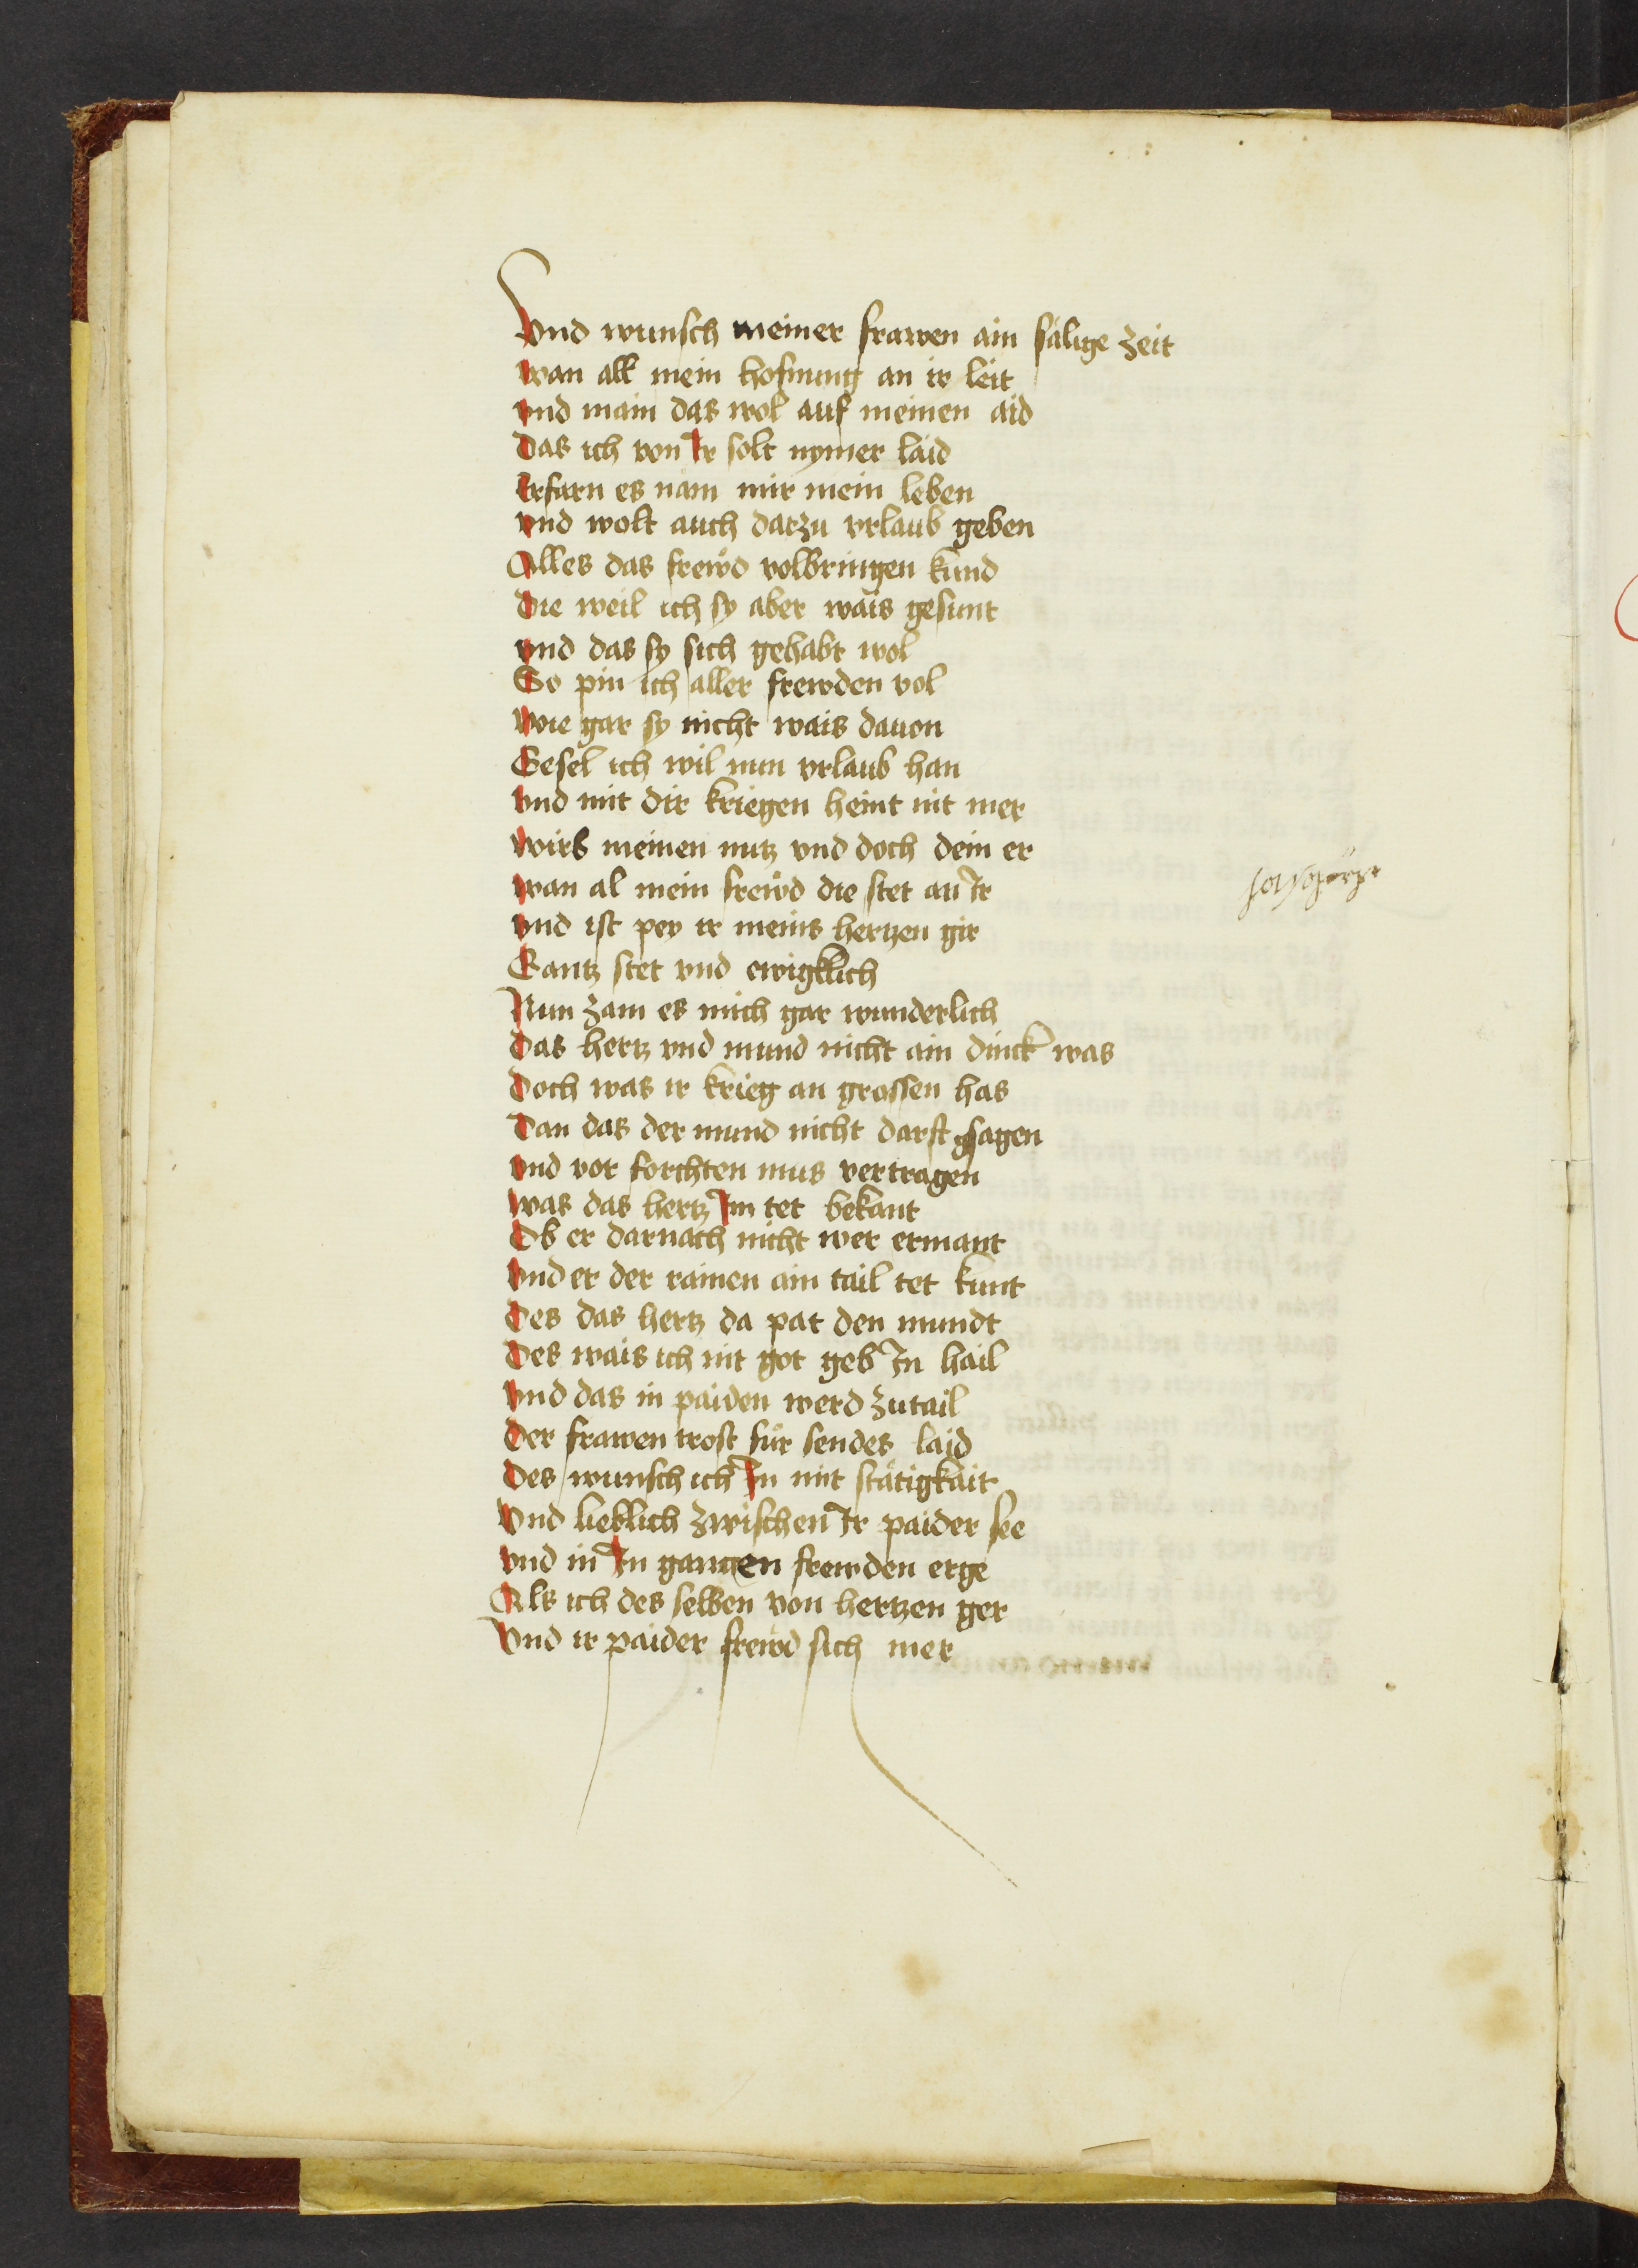 Vnd wunsch meiner frawen ain sälige zeit
wan all mein hofnung an ir leit
vnd main das wol auf meinen aid
Das ich von Ir solt nymer laid
Erfarn es nam mir mein leben
vnd wolt auch darzu vrlaub geben
Alles das frewd volbringen kund
Die weil ich sy aber wais gesunt
vnd das sy sich gehabt wol
So pin ich aller frewden vol
wie gar sy nicht wais dauon
Gesel ich wil nun vrlaub han
vnd mit dir kriegen heint nit mer
wirb meinen nutz vnd doch dein er
wan al mein frewd die stet an Ir
vnd ist pey ir meins hertzen gir
Gantz stet vnd ewigklich
Nun zam es mich gar wunderlich
das hertz vnd mund nicht ain dinck was
Doch was ir krieg an grossen has
Dan das der mund nicht darft sagen
vnd vor forchten mus vertragen
was das hertz Im tet bekant
Ob er darnach nicht wer ermant
vnd er der rainen ain tail tet kunt
Des das hertz da pat den mundt
Des wais ich nit got geb In hail
vnd das in paiden werd zutail
Der frawen trost für sendes laid
Des wunsch ich In mit stätigkait
Vnd lieblich zwischen Ir paider see
vnd in In gantzen frewden erge
Als ich des selben von hertzen ger
Vnd ir paider frewd sich mer